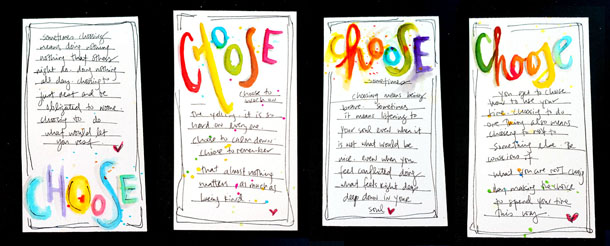 sometimes choosing
means doing nothing
nothing that others
might do. doing nothing
all day choosing to
just rest and be
obligated to no one
choosing to do
what would let
you rest
CHOOSE
CHOOSE
choose to
the yelling. it is so
hard on everyone
choose to calm down
choose to remember
that almost nothing
matters as much as
being kind.
CHOOSE
sometimes
choosing means being
brave sometimes
it means listening to
your soul even when it
is not what would be
nice. even when you
feel conflicted doing
what feels right deep
deep down in your
soul
choose
you get to choose
how to use your
time. choosing to do
one thing also means
choosing to not to
something else. Be
conscious of
what you are NOT
day making the choice
to spend your time
this way